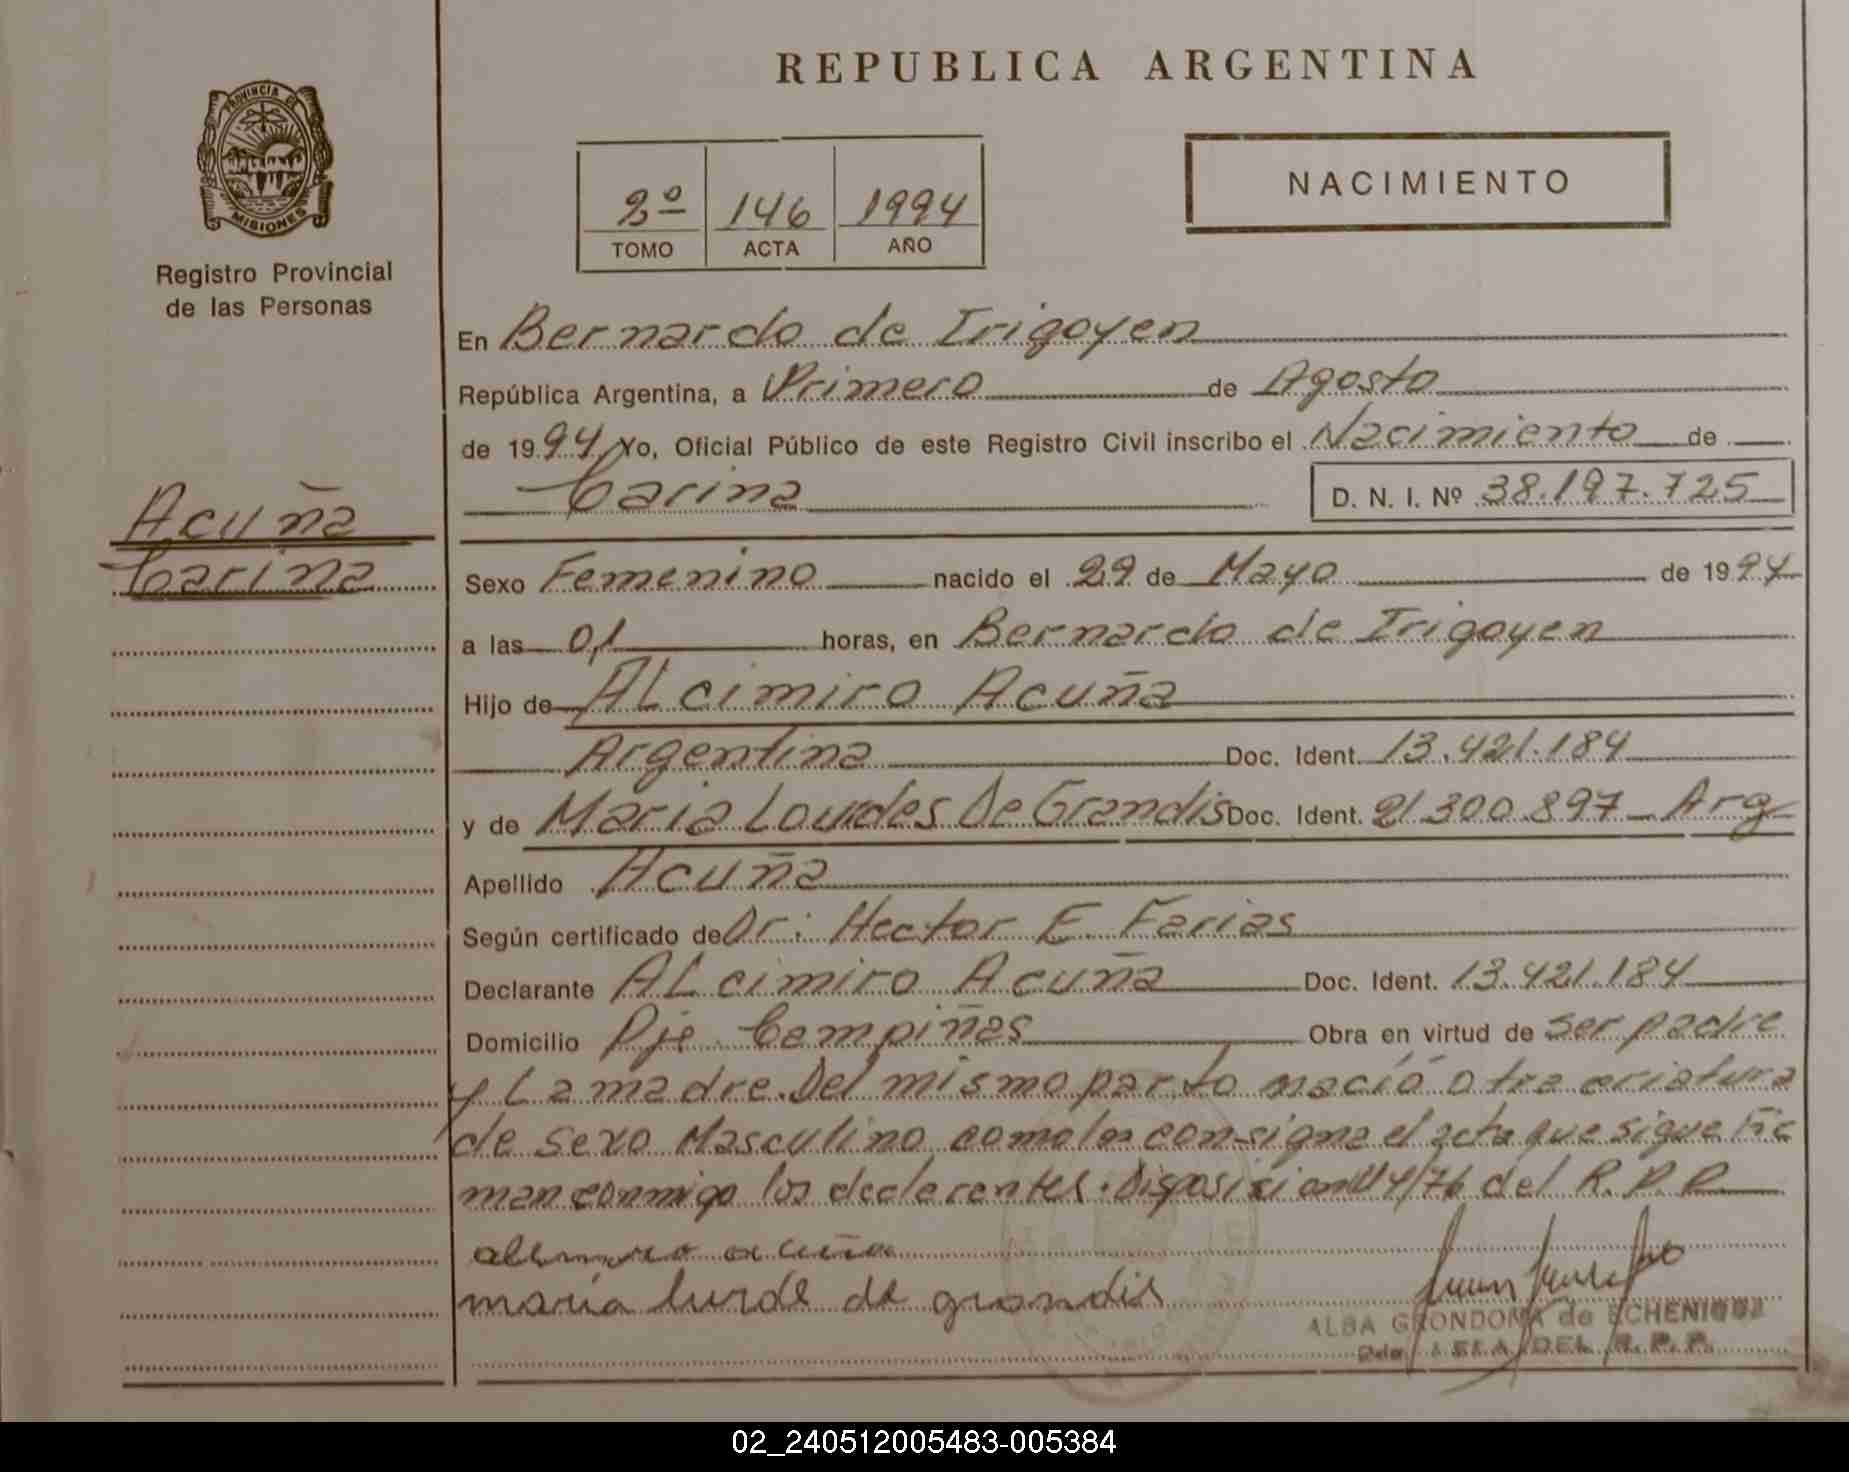 REPUBLICA ARGENTINA
PROVINCIA DE
MISIONES
Registro Provincial
de las Personas
2º 146 1994
TOMO ACTA AÑO
NACIMIENTO
En Bernardo de Irigoyen
República Argentina, a Primero de Agosto
de 1994 Yo, Oficial Público de este Registro Civil inscribo el Nacimiento de
Carina D. N. I. Nº 38.197.725
Acuña
Carina
Sexo Femenino nacido el 29 de Mayo de 1994
a las 01 horas, en Bernardo de Irigoyen
Hijo de ALcimiro Acuña
Argentina Doc. Ident. 13.421.184
y de Maria Lourdes De Grandis Doc. Ident. 21.300.897 Arg
Apellido Acuña
Según certificado de Dr: Hector E. Farias
Declarante ALcimiro Acuña Doc. Ident. 13.421.184
Domicilio Pje Campiñas Obra en virtud de ser padre
y La madre. Del mismo parto nació otra criatura
de sexo Masculino como lo consigna el acta que sigue Fir
man conmigo los declarantes. Disposision 4/76 del R. P. P.
alcimiro acuña
maria lurde de grandis
ALBA GRONDONA de ECHENIQUE
DEL R.P.P.
02_240512005483-005384